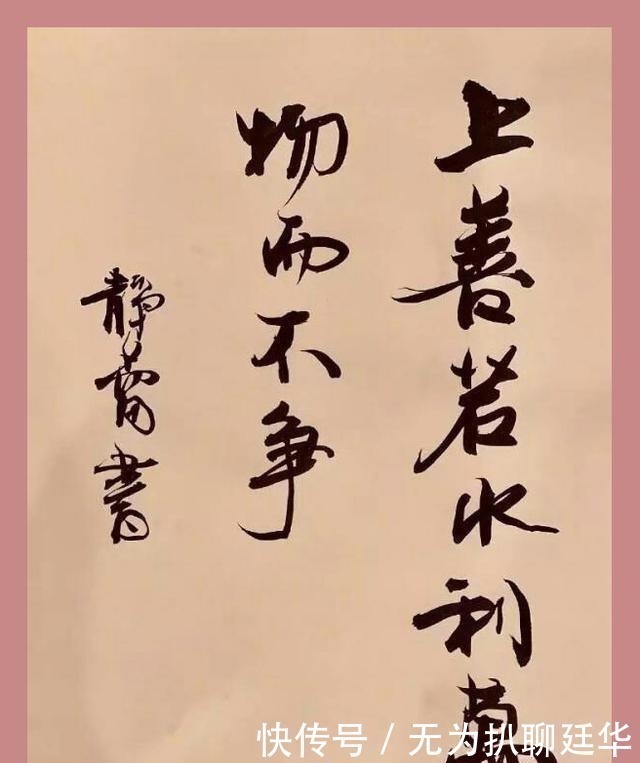 上善若水利萬
物而不争
静蕾書
快传号/无为扒聊廷华